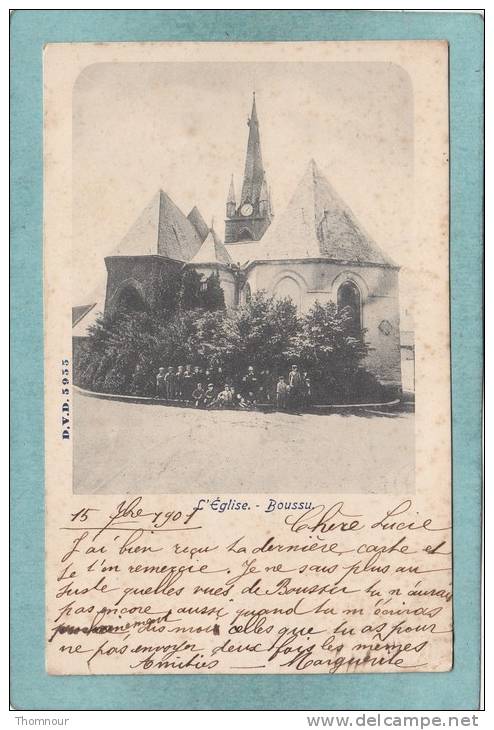 D.V.D. 5955
L'Église. - Boussu.
15 Xbre 1901 Chère Lucie
J'ai bien reçu ta dernière carte et
je t'en remercie. Je ne sais plus au
juste quelles vues de Boussu tu n'aurais
pas encore, aussi quand tu m'écriras
prochainement dis moi celles que tu as pour
ne pas envoyer deux fois les mêmes
Amitiés - Marguerite
Thomnour
http://www.delcampe.net